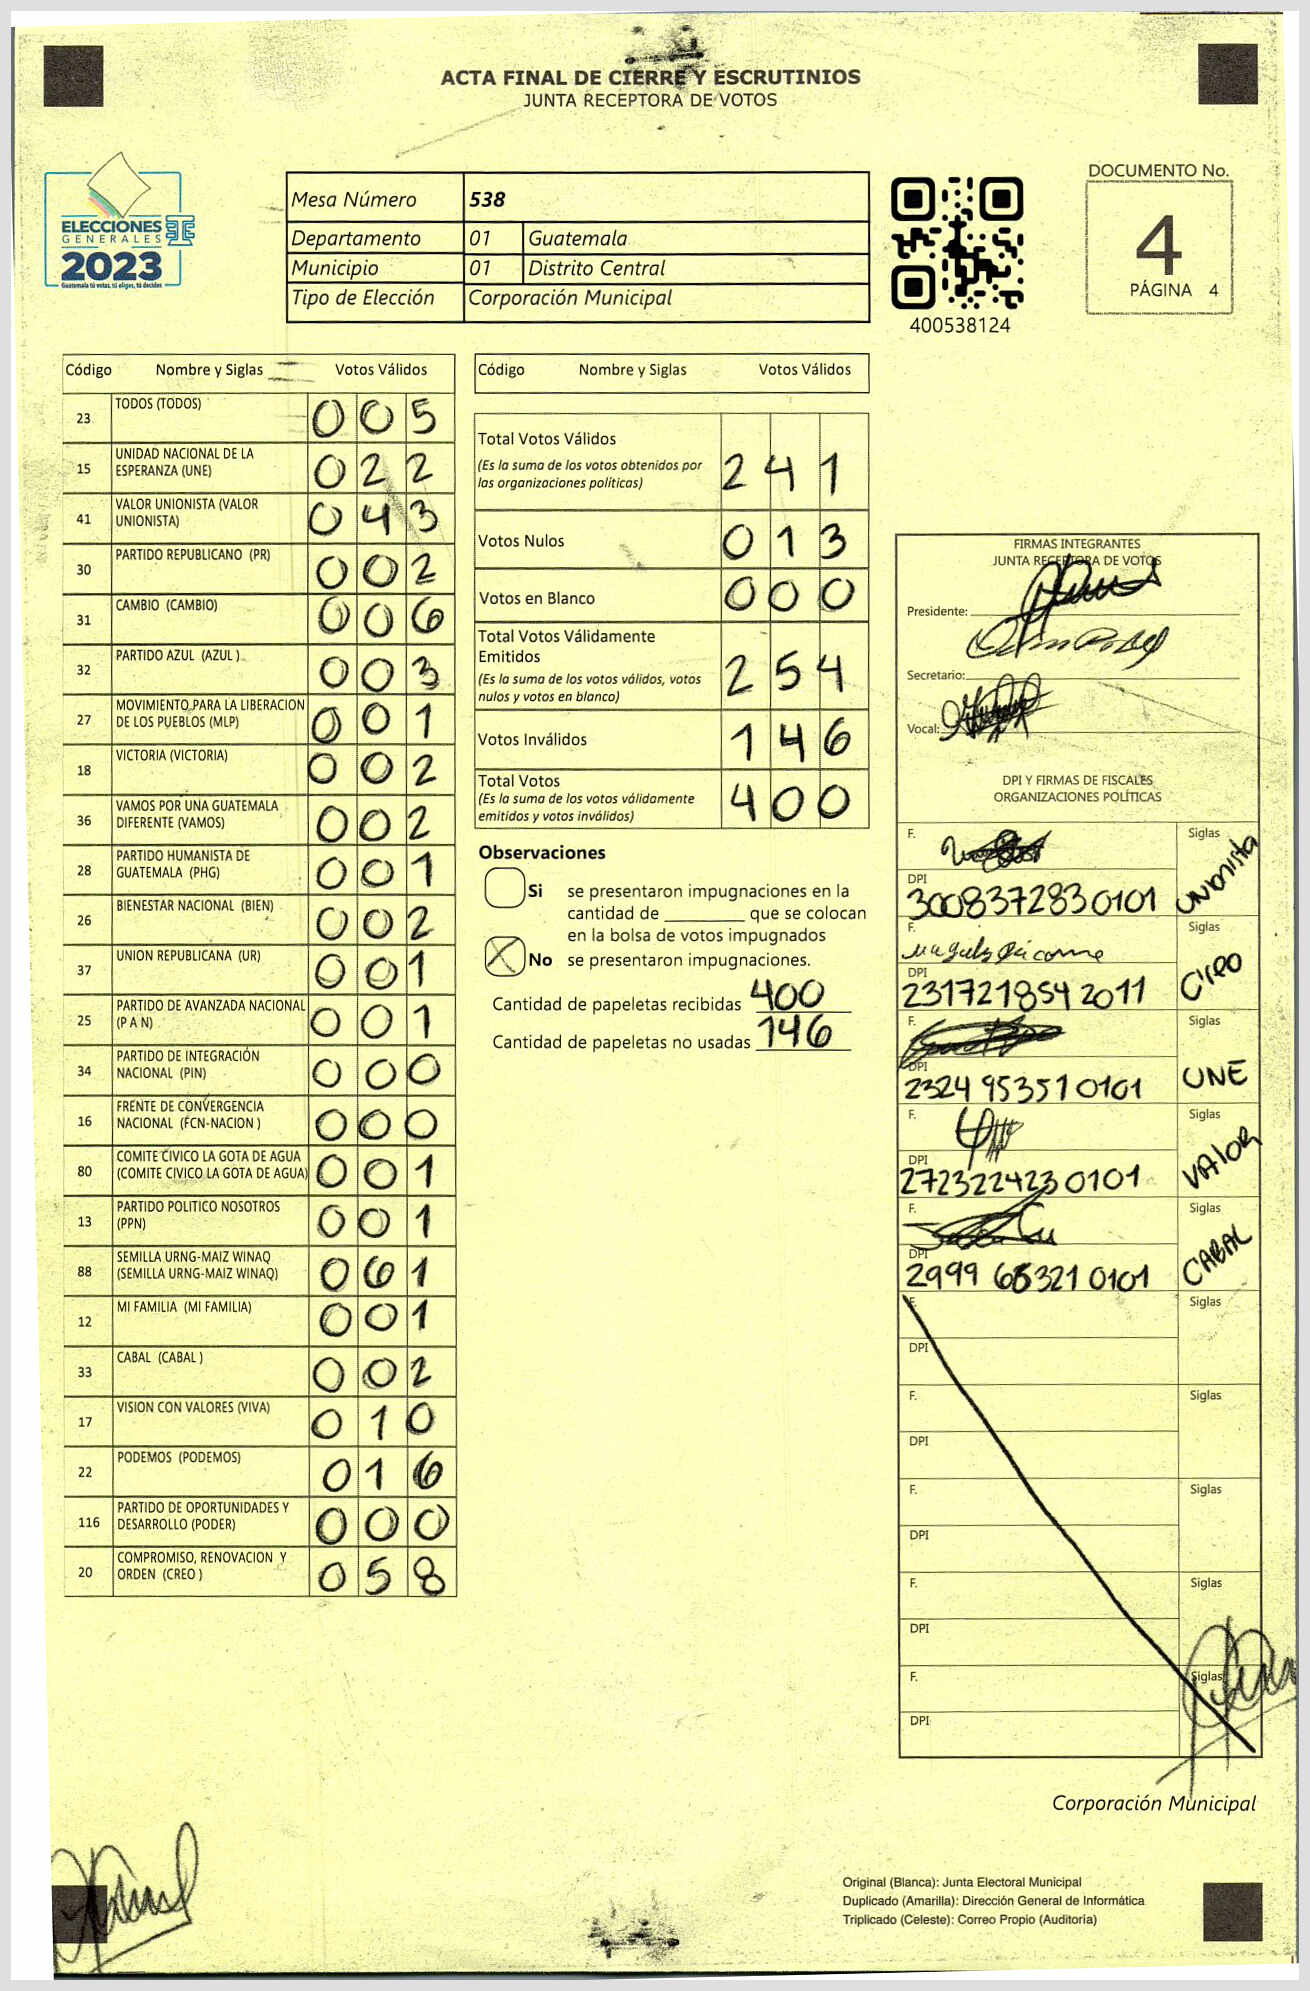 ACTA FINAL DE CIERRE Y ESCRUTINIOS
JUNTA RECEPTORA DE VOTOS
ELECCIONES
GENERALES
2023
Guatemala tú votas, tú eliges, tú decides
Mesa Número 538
Departamento 01 Guatemala
Municipio 01 Distrito Central
Tipo de Elección Corporación Municipal
400538124
DOCUMENTO No.
4
PÁGINA 4
Código Nombre y Siglas Votos Válidos
23 TODOS (TODOS) 005
15 UNIDAD NACIONAL DE LA ESPERANZA (UNE) 022
41 VALOR UNIONISTA (VALOR UNIONISTA) 043
30 PARTIDO REPUBLICANO (PR) 002
31 CAMBIO (CAMBIO) 006
32 PARTIDO AZUL (AZUL ) 003
27 MOVIMIENTO PARA LA LIBERACION DE LOS PUEBLOS (MLP) 001
18 VICTORIA (VICTORIA) 002
36 VAMOS POR UNA GUATEMALA DIFERENTE (VAMOS) 002
28 PARTIDO HUMANISTA DE GUATEMALA (PHG) 001
26 BIENESTAR NACIONAL (BIEN) 002
37 UNION REPUBLICANA (UR) 001
25 PARTIDO DE AVANZADA NACIONAL (P A N) 001
34 PARTIDO DE INTEGRACIÓN NACIONAL (PIN) 000
16 FRENTE DE CONVERGENCIA NACIONAL (FCN-NACION ) 000
80 COMITE CIVICO LA GOTA DE AGUA (COMITE CIVICO LA GOTA DE AGUA) 001
13 PARTIDO POLITICO NOSOTROS (PPN) 001
88 SEMILLA URNG-MAIZ WINAQ (SEMILLA URNG-MAIZ WINAQ) 061
12 MI FAMILIA (MI FAMILIA) 001
33 CABAL (CABAL ) 002
17 VISION CON VALORES (VIVA) 010
22 PODEMOS (PODEMOS) 016
116 PARTIDO DE OPORTUNIDADES Y DESARROLLO (PODER) 000
20 COMPROMISO, RENOVACION Y ORDEN (CREO ) 058
Código Nombre y Siglas Votos Válidos
Total Votos Válidos 241
(Es la suma de los votos obtenidos por
las organizaciones políticas)
Votos Nulos 013
Votos en Blanco 000
Total Votos Válidamente
Emitidos 254
(Es la suma de los votos válidos, votos
nulos y votos en blanco)
Votos Inválidos 146
Total Votos 400
(Es la suma de los votos válidamente
emitidos y votos inválidos)
Observaciones
Si se presentaron impugnaciones en la
cantidad de ________ que se colocan
en la bolsa de votos impugnados
X No se presentaron impugnaciones.
Cantidad de papeletas recibidas 400
Cantidad de papeletas no usadas 146
FIRMAS INTEGRANTES
JUNTA RECEPTORA DE VOTOS
Presidente:
Secretario:
Vocal:
DPI Y FIRMAS DE FISCALES
ORGANIZACIONES POLÍTICAS
F. Siglas
DPI 3008372830101 UNIONISTA
F. Siglas
DPI 2317218542011 CREO
F. Siglas
DPI 2324 953510101 UNE
F. Siglas
DPI 2723224230101 VALOR
F. Siglas
DPI 2999 65321 0101 CABAL
F. Siglas
DPI
F. Siglas
DPI
F. Siglas
DPI
F. Siglas
DPI
F. Siglas
DPI
Corporación Municipal
Original (Blanca): Junta Electoral Municipal
Duplicado (Amarilla): Dirección General de Informática
Triplicado (Celeste): Correo Propio (Auditoría)